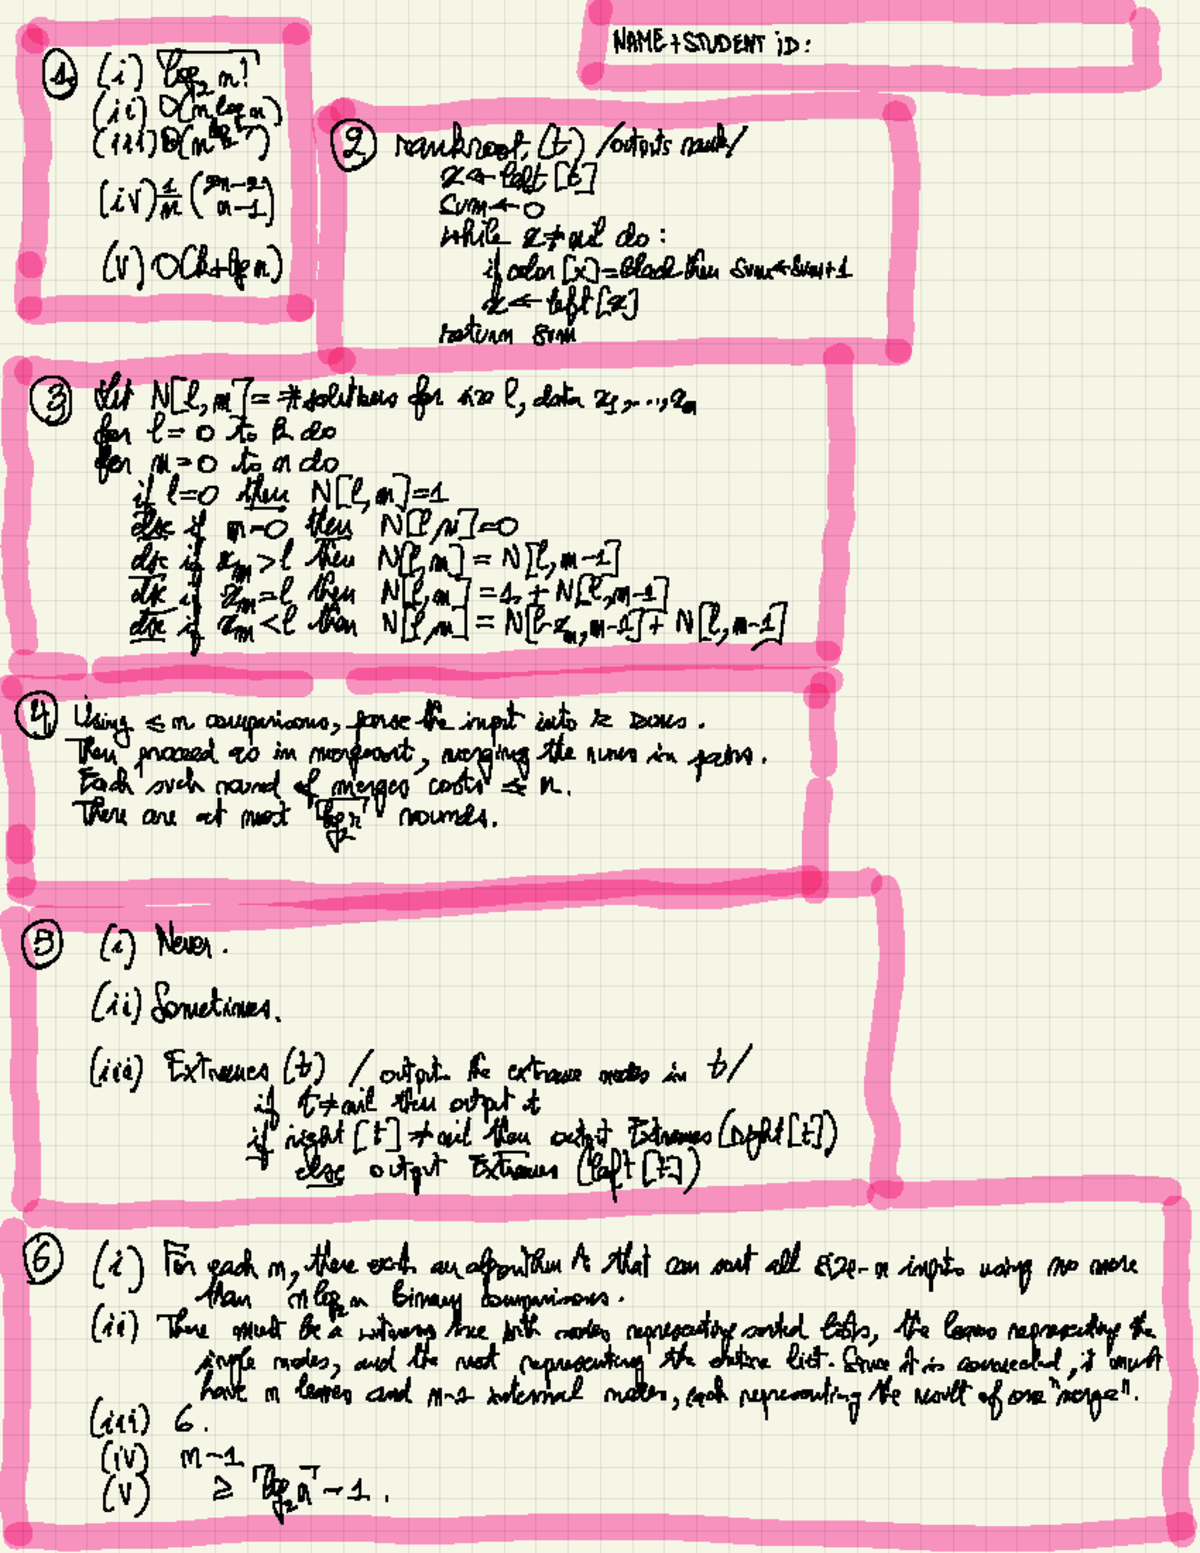 NAME + STUDENT iD:
1. (i) ⌈log₂ n!⌉
(ii) O(n log n)
(iii) Θ(n^
(iv) 1/n (2n-2 n-1)
(v) O(k+log n)
2 rankroot (t) /outputs rank/
x ← left [t]
sum ← 0
while x ≠ nil do :
if color [x] = black then sum ← sum+1
x ← left [x]
return sum
3 Let N[l, m] = # solutions for size l, data x₁, ..., xₘ
for l = 0 to k do
for m = 0 to n do
if l=0 then N[l, m] = 1
else if m=0 then N[l, m] = 0
else if xₘ > l then N[l, m] = N[l, m-1]
else if xₘ = l then N[l, m] = 1 + N[l, m-1]
else if xₘ < l then N[l, m] = N[l-xₘ, m-1] + N[l, m-1]
4 Using ≤ n comparisons, parse the input into k runs.
Then proceed as in mergesort, merging the runs in pairs.
Each such round of merges costs ≤ n.
There are at most ⌈log₂ k⌉ rounds.
5 (i) Never.
(ii) Sometimes.
(iii) Extremes (t) / output the extreme nodes in t/
if t ≠ nil then output t
if right [t] ≠ nil then output Extremes (right [t])
else output Extremes (left [t])
6 (i) For each n, there exists an algorithm A that can sort all size-n inputs using no more
than n log₂ n binary comparisons.
(ii) There must be a witness tree with nodes representing sorted lists, the leaves representing the
single nodes, and the root representing the entire list. Since it is connected, it must
have n leaves and n-1 internal nodes, each representing the result of one "merge".
(iii) 6.
(iv) n-1
(v) ≥ ⌈log₂ n⌉ - 1.